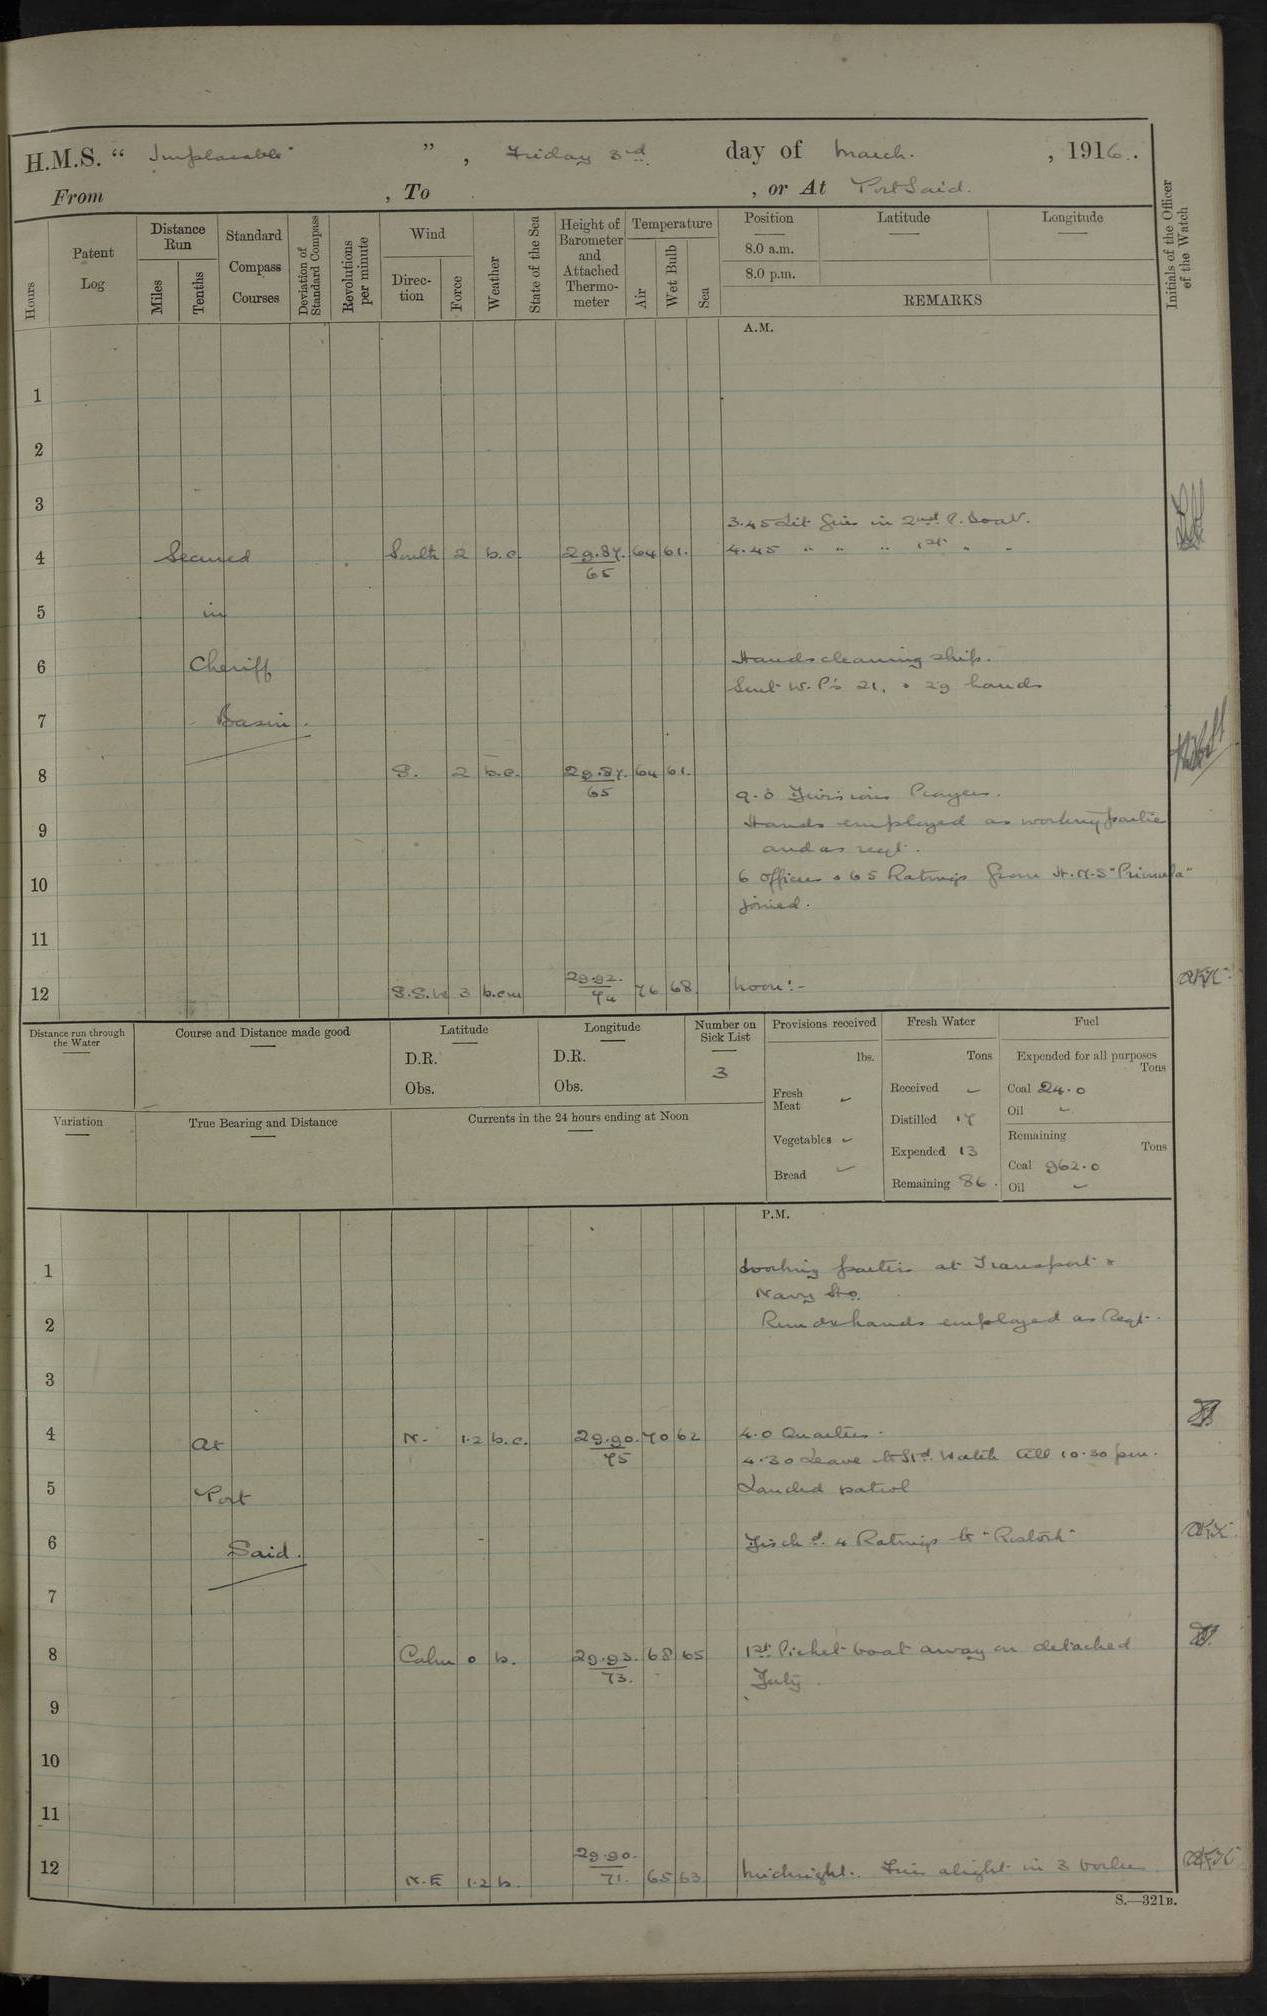 H.M.S. “ Implacable ” , Friday 3rd day of March. , 1916.
From , To , or At Port Said.
Hours
Patent Log
Distance Run
Miles
Tenths
Standard Compass Courses
Deviation of Standard Compass
Revolutions per minute
Wind
Direction
Force
Weather
State of the Sea
Height of Barometer and Attached Thermometer
Temperature
Air
Wet Bulb
Sea
Position Latitude Longitude
8.0 a.m.
8.0 p.m.
REMARKS
Initials of the Officer of the Watch
A.M.
1
2
3
3.45 Lit fires in 2nd P. Boat.
4 Secured South 2 b.c. 29.87. 64 61. 4.45 " " " 1st " "
65
5 in
6 Cheriff Hands cleaning ship.
Sent W.P's 21, & 29 hands
7 Basin.
8 S. 2 b.c. 29.87. 64 61.
65
9.0 Divisions Prayers.
9 Hands employed as working partie
and as reqt.
10 6 Officers & 65 Ratings from H.M.S "Primula"
joined.
11
12 S.S.W 3 b.cm 29.92. 76 68 Noon:-
74
Distance run through the Water
Course and Distance made good
Latitude
D.R.
Obs.
Longitude
D.R.
Obs.
Number on Sick List
3
Provisions received
lbs.
Fresh Meat -
Vegetables -
Bread -
Fresh Water
Tons
Received -
Distilled 17
Expended 13
Remaining 86.
Fuel
Expended for all purposes
Tons
Coal 24.0
Oil -
Remaining
Tons
Coal 962.0
Oil -
Variation
True Bearing and Distance
Currents in the 24 hours ending at Noon
P.M.
1 Working parties at Transport &
Navy
2 hands employed as Reqt.
3
4 At N. 1.2 b.c. 29.90. 70 62 4.0 Quarters.
75
4.30 Leave to Std Watch till 10.30 pm.
5 Port Landed patrol
6 Said. Disch'd. 4 Ratings to
7
8 Calm 0 b. 29.93. 68 65 1st Picket boat away on detached
73.
Duty.
9
10
11
12 N.E 1.2 b. 29.90. 65 63 Midnight. Fires alight in 3 boilers
71.
S.—321B.